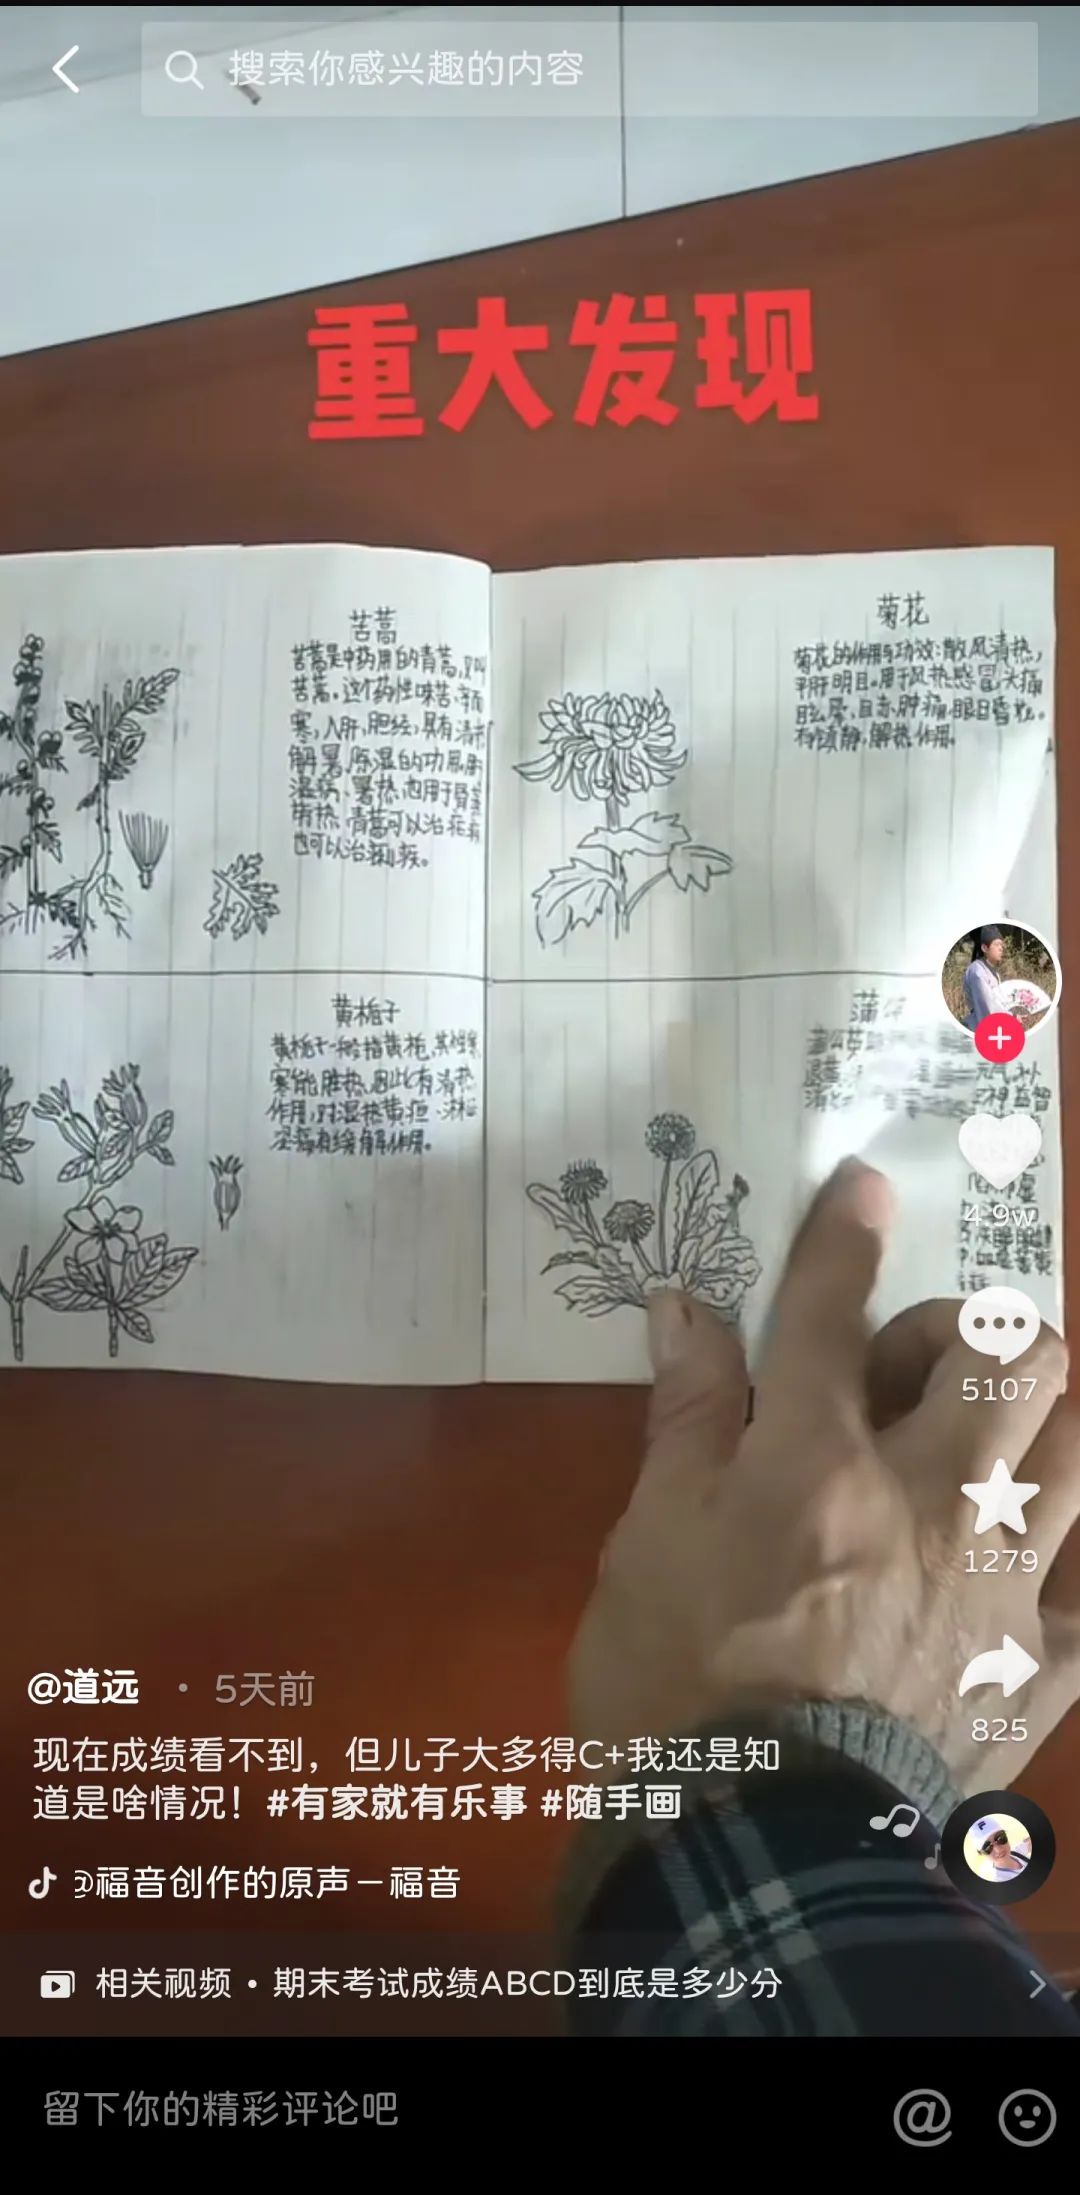 搜索你感兴趣的内容
重大发现
苦蒿
苦蒿是中药用的青蒿,又叫
苦蒿。这个药性味苦、辛而
寒,入肝,胆经,具有清热
解暑,除湿的功用,用
湿病、暑热,也用于骨蒸
青蒿可以治疟疾
也可以治
黄栀子
黄栀子一般指黄栀,其性寒
寒能胜热,因此有清热
作用,对湿热黄疸
有缓解作用。
菊花
菊花的作用与功效:散风清热,
平肝明目。用于风热感冒,头痛
眩晕、目赤、肿痛、眼目昏花。
有镇静,解热作用。
蒲
蒲公英
元气补
神益智
4.9w
5107
1279
825
@道远 · 5天前
现在成绩看不到，但儿子大多得C+我还是知
道是啥情况！#有家就有乐事 #随手画
@福音创作的原声－福音
相关视频 • 期末考试成绩ABCD到底是多少分
留下你的精彩评论吧